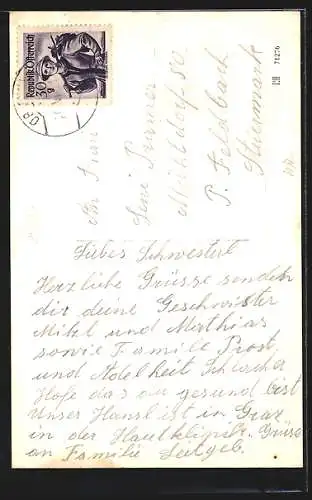 Republik Österreich
30 g
71276
An Frau
Leni
Mühldorf 50
P. Feldbach
Steiermark
Liebes Schwesterl
Herzliche Grüsse senden
dir deine Geschwister
Mikl und Mathias
sowie Familie Prost
und Adelheit
Hofe das du gesund bist
Unser Hansl ist in Graz
in der Hautklinik. Grüsse
an Familie Leitgeb.